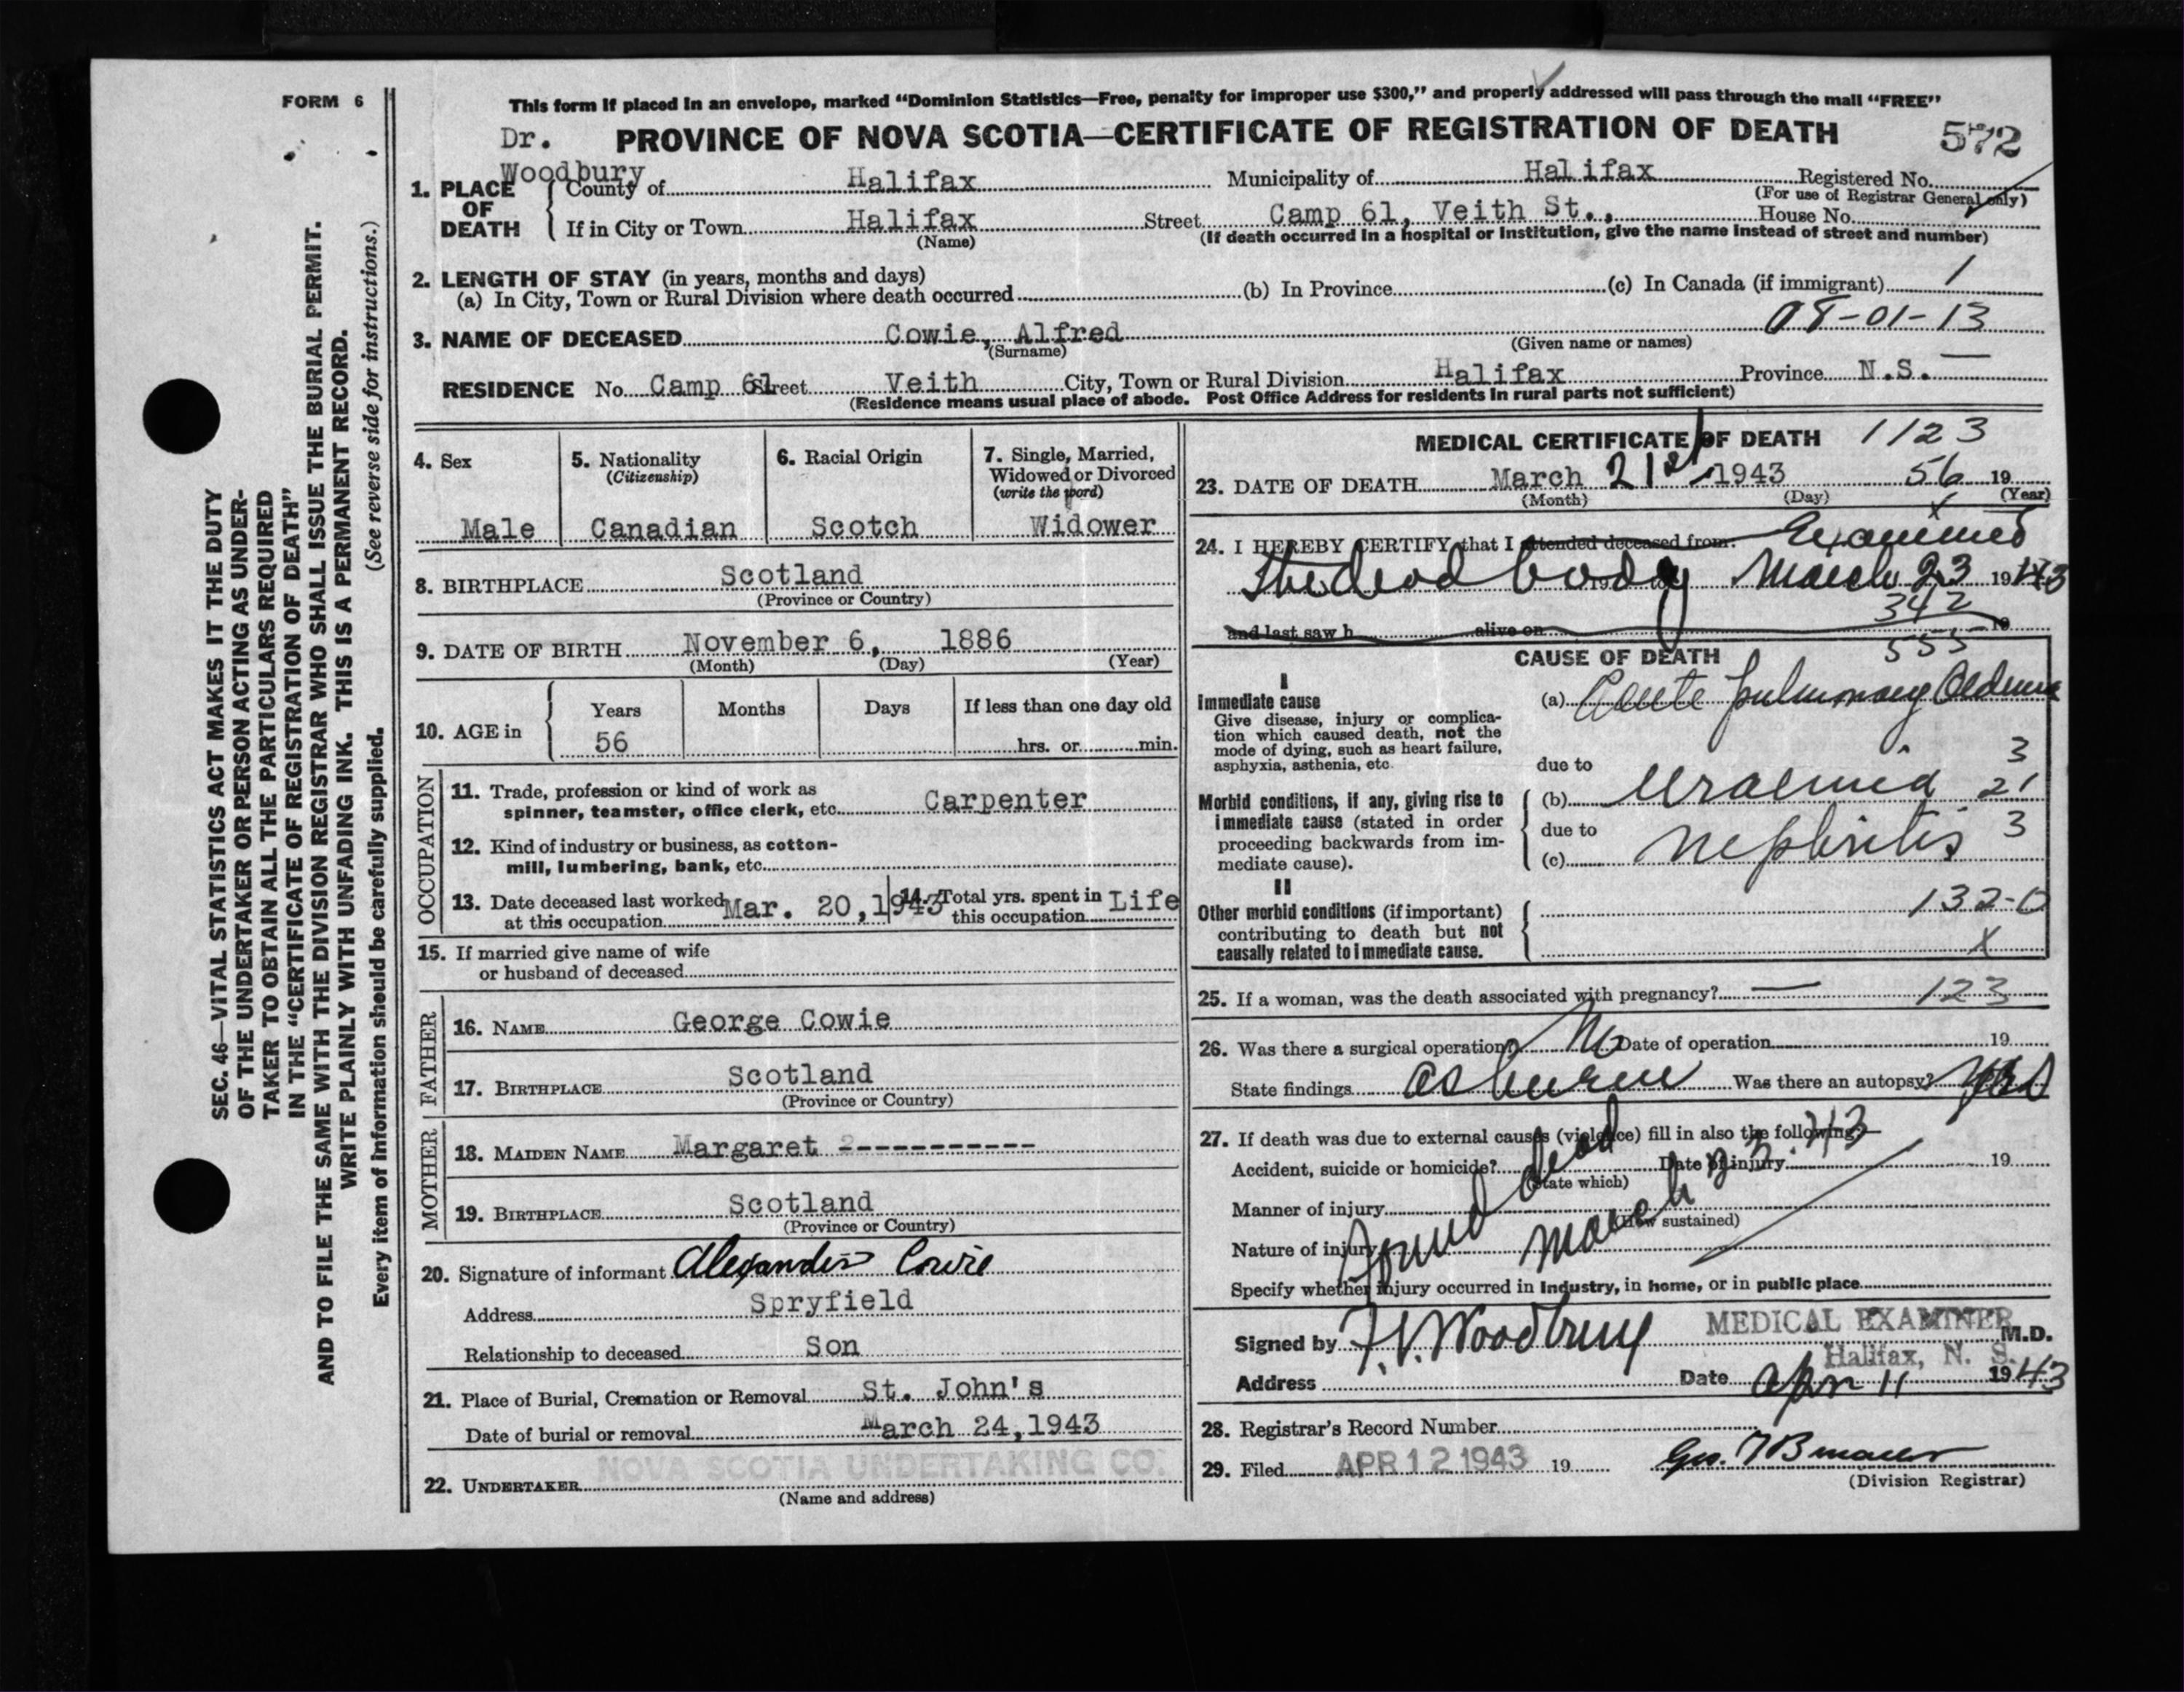 FORM 6
This form if placed in an envelope, marked “Dominion Statistics—Free, penalty for improper use $300,” and properly addressed will pass through the mail “FREE”
Dr. Woodbury
PROVINCE OF NOVA SCOTIA—CERTIFICATE OF REGISTRATION OF DEATH 572
1. PLACE OF DEATH
County of Halifax Municipality of Halifax Registered No.
(For use of Registrar General only)
If in City or Town Halifax Street Camp 61, Veith St., House No.
(Name) (If death occurred in a hospital or institution, give the name instead of street and number)
2. LENGTH OF STAY (in years, months and days)
(a) In City, Town or Rural Division where death occurred (b) In Province (c) In Canada (if immigrant) 1
08-01-13
3. NAME OF DECEASED Cowie, Alfred
(Surname) (Given name or names)
RESIDENCE No. Camp 61 Street Veith City, Town or Rural Division Halifax Province N.S.
(Residence means usual place of abode. Post Office Address for residents in rural parts not sufficient)
4. Sex
Male
5. Nationality
(Citizenship)
Canadian
6. Racial Origin
Scotch
7. Single, Married,
Widowed or Divorced
(write the word)
Widower
8. BIRTHPLACE Scotland
(Province or Country)
9. DATE OF BIRTH November 6, 1886
(Month) (Day) (Year)
10. AGE in
Years Months Days If less than one day old
56 hrs. or min.
OCCUPATION
11. Trade, profession or kind of work as
spinner, teamster, office clerk, etc. Carpenter
12. Kind of industry or business, as cotton-
mill, lumbering, bank, etc.
13. Date deceased last worked
at this occupation Mar. 20, 1943
14. Total yrs. spent in
this occupation Life
15. If married give name of wife
or husband of deceased
FATHER
16. NAME George Cowie
17. BIRTHPLACE Scotland
(Province or Country)
MOTHER
18. MAIDEN NAME Margaret ?----------
19. BIRTHPLACE Scotland
(Province or Country)
20. Signature of informant Alexander Cowie
Address Spryfield
Relationship to deceased Son
21. Place of Burial, Cremation or Removal St. John's
Date of burial or removal March 24, 1943
NOVA SCOTIA UNDERTAKING CO.
22. UNDERTAKER
(Name and address)
MEDICAL CERTIFICATE OF DEATH 1123
23. DATE OF DEATH March 21st 1943 56 19
(Month) (Day) (Year)
24. I HEREBY CERTIFY that I attended deceased from: Examined
the dead body 19 March 23 1943
342
and last saw h alive on 19
555
CAUSE OF DEATH
I
Immediate cause
Give disease, injury or complica-
tion which caused death, not the
mode of dying, such as heart failure,
asphyxia, asthenia, etc.
(a) Acute pulmonary Oedema
due to 3
Morbid conditions, if any, giving rise to
immediate cause (stated in order
proceeding backwards from im-
mediate cause).
(b) Uraemia 21
due to 3
(c) Nephritis
II
Other morbid conditions (if important)
contributing to death but not
causally related to immediate cause.
132-0
X
25. If a woman, was the death associated with pregnancy? — 123
26. Was there a surgical operation? No Date of operation 19
State findings as above Was there an autopsy? Yes
27. If death was due to external causes (violence) fill in also the following:—
Accident, suicide or homicide? Date of injury 19
(State which)
Manner of injury
(How sustained)
Nature of injury
Found dead
March 23 43
Specify whether injury occurred in Industry, in home, or in public place
Signed by F.V. Woodbury MEDICAL EXAMINER M.D.
Halifax, N. S.
Address Date Apr 11 1943
28. Registrar's Record Number
29. Filed APR 12 1943 19
(Division Registrar)
SEC. 46—VITAL STATISTICS ACT MAKES IT THE DUTY
OF THE UNDERTAKER OR PERSON ACTING AS UNDER-
TAKER TO OBTAIN ALL THE PARTICULARS REQUIRED
IN THE “CERTIFICATE OF REGISTRATION OF DEATH”
AND TO FILE THE SAME WITH THE DIVISION REGISTRAR WHO SHALL ISSUE THE BURIAL PERMIT.
WRITE PLAINLY WITH UNFADING INK. THIS IS A PERMANENT RECORD.
Every item of information should be carefully supplied. (See reverse side for instructions.)